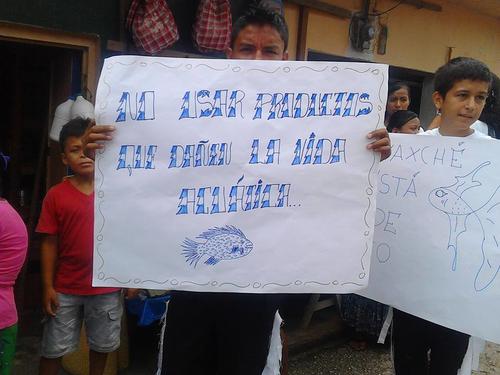 NO USAR PRODUCTOS
QUE DAÑEN LA VIDA
ACUÁTICA...
AXCHÉ
STÁ
DE
O